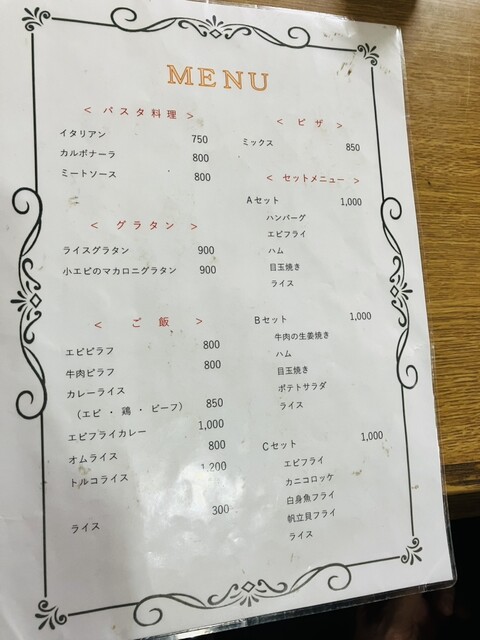 MENU
< パスタ料理 >
イタリアン 750
カルボナーラ 800
ミートソース 800
< グラタン >
ライスグラタン 900
小エビのマカロニグラタン 900
< ご飯 >
エビピラフ 800
牛肉ピラフ 800
カレーライス
(エビ・鶏・ビーフ) 850
エビフライカレー 1,000
オムライス 800
トルコライス 1,200
ライス 300
< ピザ >
ミックス 850
< セットメニュー >
Aセット 1,000
ハンバーグ
エビフライ
ハム
目玉焼き
ライス
Bセット 1,000
牛肉の生姜焼き
ハム
目玉焼き
ポテトサラダ
ライス
Cセット 1,000
エビフライ
カニコロッケ
白身魚フライ
帆立貝フライ
ライス